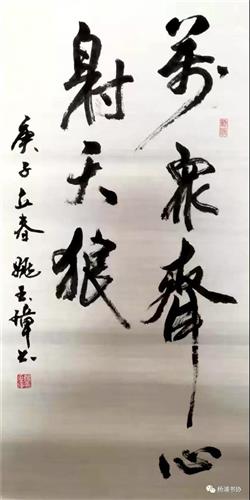 萬眾齊心
射天狼
庚子立春 姚玉璋书
杨浦书协